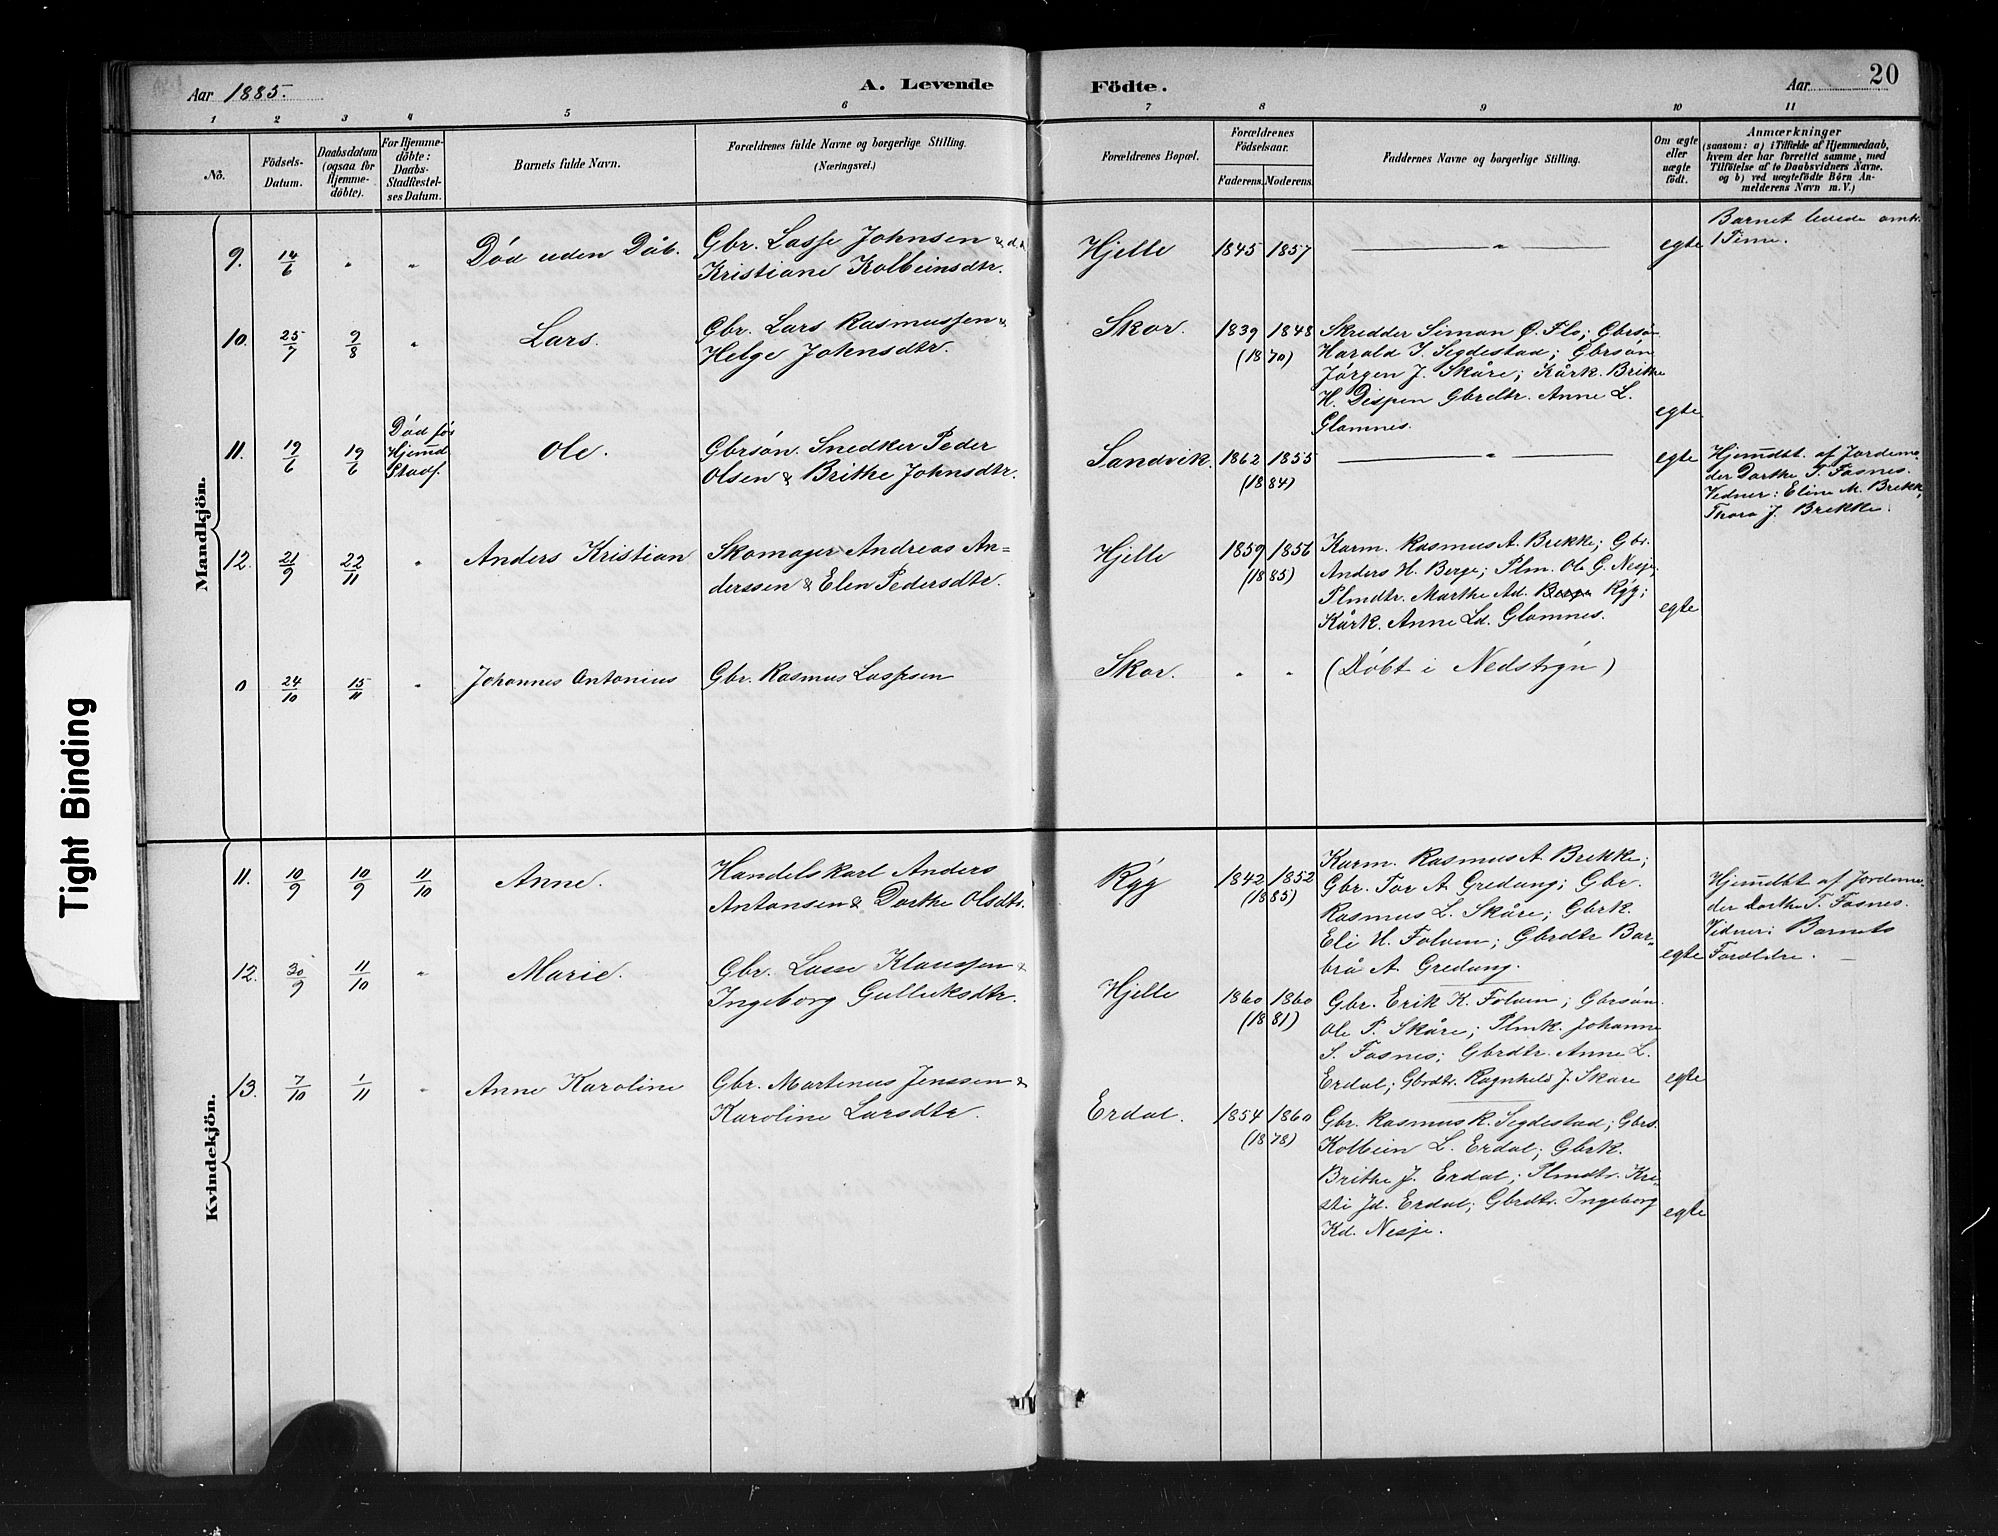 Aar 1885.
A. Levende
Födte.
Aar
20
1 2 3 4 5 6 7 8 9 10 11
No.
Födsels-
Datum.
Daabsdatum
(ogsaa for
Hjemme-
döbte).
For Hjemme-
döbte:
Daabs-
Stadfestel-
ses Datum.
Barnets fulde Navn.
Forældrenes fulde Navne og borgerlige Stilling.
(Næringsvei.)
Forældrenes Bopæl.
Forældrenes
Födselsaar.
Faderens. Moderens.
Faddernes Navne og borgerlige Stilling.
Om ægte
eller
uægte
födt.
Anmærkninger
(saasom: a) i Tilfælde af Hjemmedaab,
hvem der har forrettet samme, med
Tilföielse af to Daabsvidners Navne,
og b) ved uægtefödte Börn An-
melderens Navn m. V.)
Mandkjön.
9. 14/6 " " Död uden Dåb.
Gbr. Lasse Johnsen &
Kristiane Kolbeinsdtr.
Hjelle 1845 1857 — " — egte
Barnet levede omk.
1 Time.
10. 25/7 9/8 " Lars.
Gbr. Lars Rasmussen &
Helge Johnsdtr.
Skor. 1839 1848
(1870)
Skredder Simon Ø. Flo; Gbrsøn
Harald J. Segdestad; Gbrsøn
Jørgen J. Skåre; Kårk. Brithe
H. Dispen Gbrdtr. Anne L.
Glomnes.
egte
11. 19/6 19/6
Död før
Hjemd
Stadf.
Ole.
Gbrsøn. Snedker Peder
Olsen & Brithe Johnsdtr.
Sandvik. 1862 1855
(1884)
— " — egte
Hjemdbt. af Jordemo-
der Dorthe T. Fosnes.
Vidner: Eline M. Brekk,
Thora J. Brekke.
12. 21/9 22/11 " Anders Kristian
Skomager Andreas An-
derssen & Elen Pedersdtr.
Hjelle 1859 1856
(1885)
Karm. Rasmus A. Brekke; Gbr.
Anders H. Berge; Plm. Ole G. Nesje;
Plmdtr. Marthe Ad. Berge Rÿg;
Kårk. Anne Ld. Glomnes.
egte
0 24/10 15/11 " Johannes Antonius
Gbr. Rasmus Lassesen
Skor. " " (Döbt i Nedstryn)
Kvindekjön.
11. 10/9 10/9 11/10 Anne.
Handelskarl Anders
Antonsen & Dorthe Olsdtr.
Rÿg 1842 1852
(1885)
Karm. Rasmus A. Brekke;
Gbr. Tor A. Gredung; Gbr.
Rasmus L. Skåre; Gbrk.
Eli H. Folven; Gbrdtr Bar-
brå A. Gredung.
egte
Hjemdbt af Jordemo-
der Dorthe T. Fosnes.
Vidner: Barnets
Foroldre. —
12. 30/9 11/10 " Marie.
Gbr. Lasse Klaussen &
Ingeborg Gulleiksdtr.
Hjelle 1860 1860
(1881)
Gbr. Erik K. Folven; Gbrsøn
Ole P. Skåre; Plmk. Johanne
S. Fosnes; Gbrdtr. Anne L.
Erdal; Gbrdtr. Ragnheld J. Skåre
egte
13. 7/10 1/11 " Anne Karoline
Gbr. Martenus Jenssen &
Karoline Larsdtr.
Erdal. 1854 1860
(1878)
Gbr. Rasmus R. Segdestad; Gbrs.
Kolbein L. Erdal; Gbrk.
Brithe J. Erdal; Plmdtr. Kri-
sti Jd. Erdal; Gbrdtr. Ingeborg
Kd. Nesje.
egte
Tight Binding